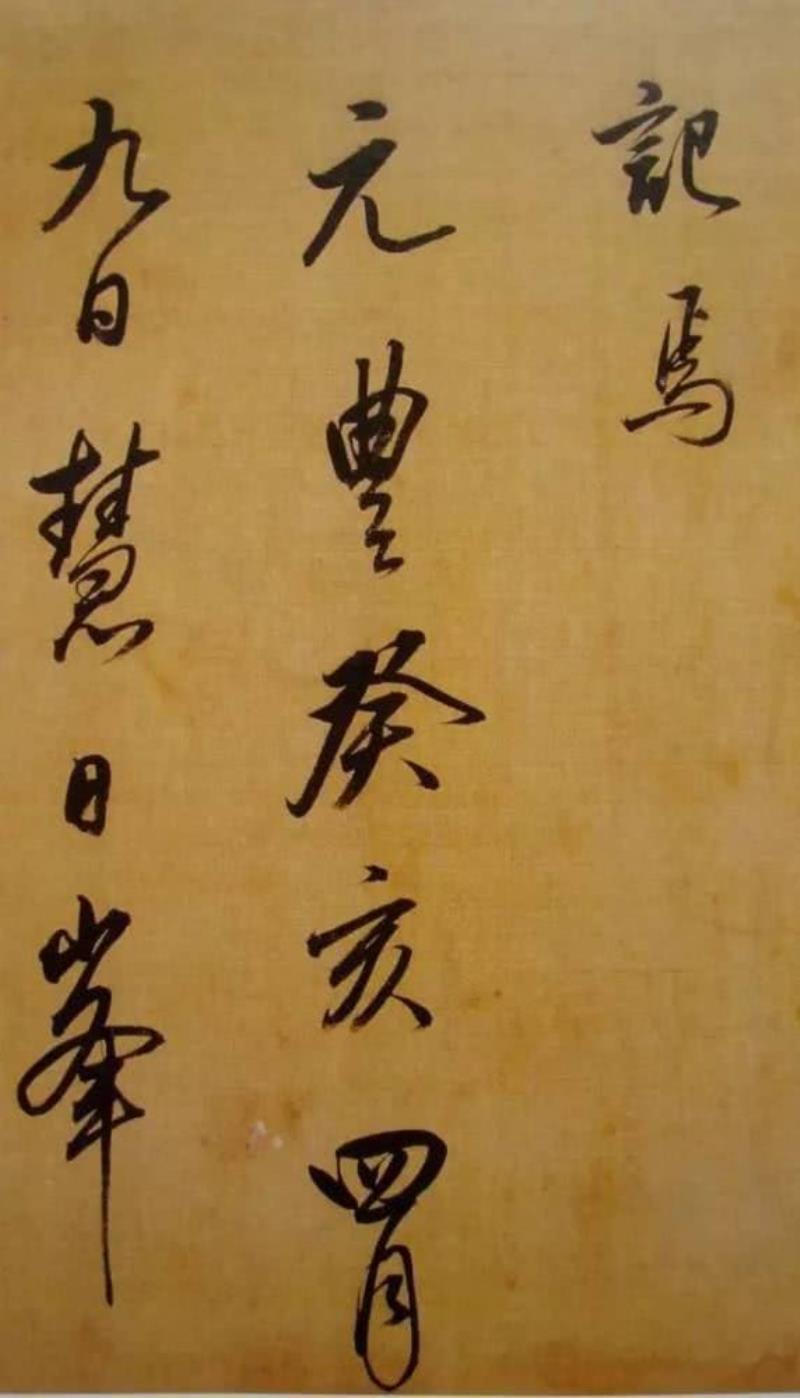 記焉
元豐癸亥四月
九日慧日峯